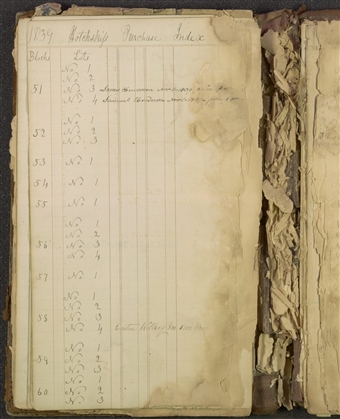 1839 Hotchkiss Purchase Index
Blocks Lots
No 1
No 2
51 No 3
No 4 Samuel
No 1
52 No 2
No 3
53 No 1
54 No 1
55 No 1
No 1
No 2
56 No 3
No 4
57 No 1
No 1
No 2
58 No 3
No 4
No 1
59 No 2
No 3
No 1
60 No 2
No 3